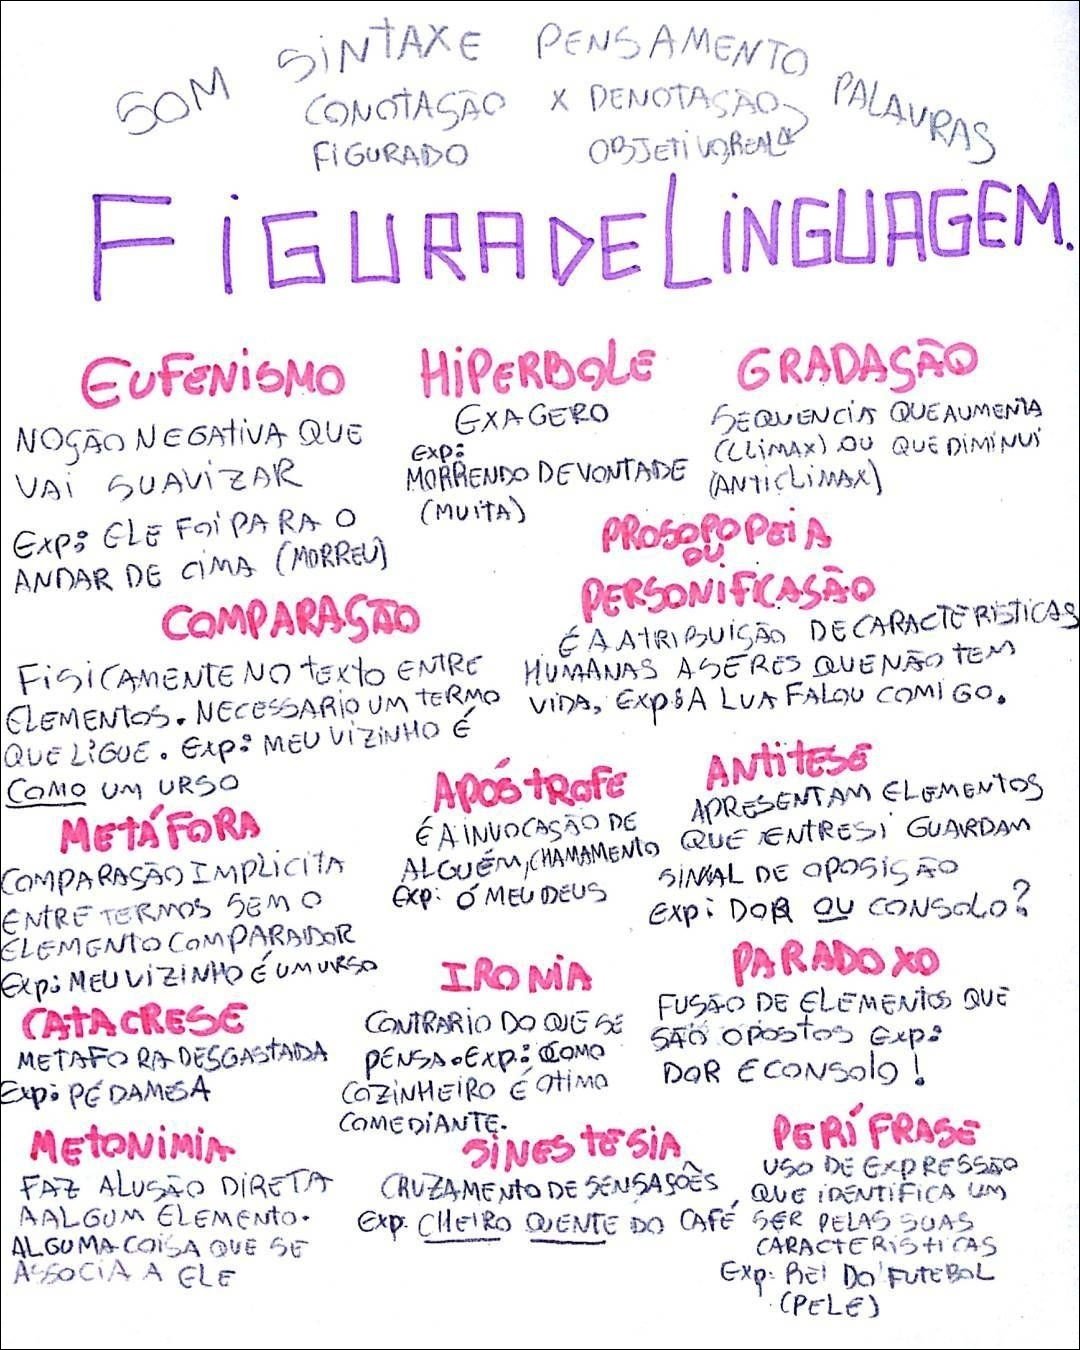 SOM SINTAXE PENSAMENTO PALAVRAS
CONOTAÇÃO X DENOTAÇÃO
FIGURADO OBJETIVO, REAL
FIGURA DE LINGUAGEM.
EUFENISMO
NOÇÃO NEGATIVA QUE
VAI SUAVIZAR
EXP: ELE FOI PARA O
ANDAR DE CIMA (MORREU)
HIPERBOLE
EXAGERO
EXP:
MORRENDO DE VONTADE
(MUITA)
GRADAÇÃO
SEQUENCIA QUE AUMENTA
(CLIMAX) OU QUE DIMINUI
(ANTICLIMAX)
PROSOPOPEIA
OU
PERSONIFICAÇÃO
É A ATRIBUIÇÃO DE CARACTERISTICAS
HUMANAS A SERES QUE NÃO TEM
VIDA, EXP: A LUA FALOU COMIGO.
COMPARAÇÃO
FISICAMENTE NO TEXTO ENTRE
ELEMENTOS. NECESSARIO UM TERMO
QUE LIGUE. EXP: MEU VIZINHO É
COMO UM URSO
APÓSTROFE
É A INVOCAÇÃO DE
ALGUÉM, CHAMAMENTO
EXP: Ó MEU DEUS
ANTITESE
APRESENTAM ELEMENTOS
QUE ENTRE SI GUARDAM
SINAL DE OPOSIÇÃO
EXP: DOR OU CONSOLO?
METÁFORA
COMPARAÇÃO IMPLICITA
ENTRE TERMOS SEM O
ELEMENTO COMPARADOR
EXP: MEU VIZINHO É UM URSO
IRONIA
CONTRARIO DO QUE SE
PENSA. EXP: COMO
COZINHEIRO É OTIMO
COMEDIANTE.
PARADOXO
FUSÃO DE ELEMENTOS QUE
SÃO OPOSTOS EXP:
DOR E CONSOLO!
CATACRESE
METAFORA DESGASTADA
EXP: PÉ DA MESA
METONIMIA
FAZ ALUSÃO DIRETA
A ALGUM ELEMENTO.
ALGUMA COISA QUE SE
ASSOCIA A ELE
SINESTESIA
CRUZAMENTO DE SENSAÇÕES
EXP: CHEIRO QUENTE DO CAFÉ
PERÍFRASE
USO DE EXPRESSÃO
QUE IDENTIFICA UM
SER PELAS SUAS
CARACTERISTICAS
EXP: REI DO FUTEBOL
(PELE)